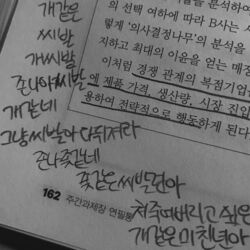 개같은
씨발
개씨발
존나아씨발
개같네
그냥 씨발아 다 뒤져라
존나 좆같네
좆같은 씨발련아
쳐죽여버리고 싶은
개같은 미친년아
을 분석하여
의 선택 여하에 따라 B사는 서
렇게 '의사결정나무'의 분석을
지하고 최대의 이윤을 얻는 매장
이처럼 경쟁 관계의 복점기업
에 제품 가격, 생산량, 시장 진입
용하여 전략적으로 행동하게 된다
162 주간과제장 연필통